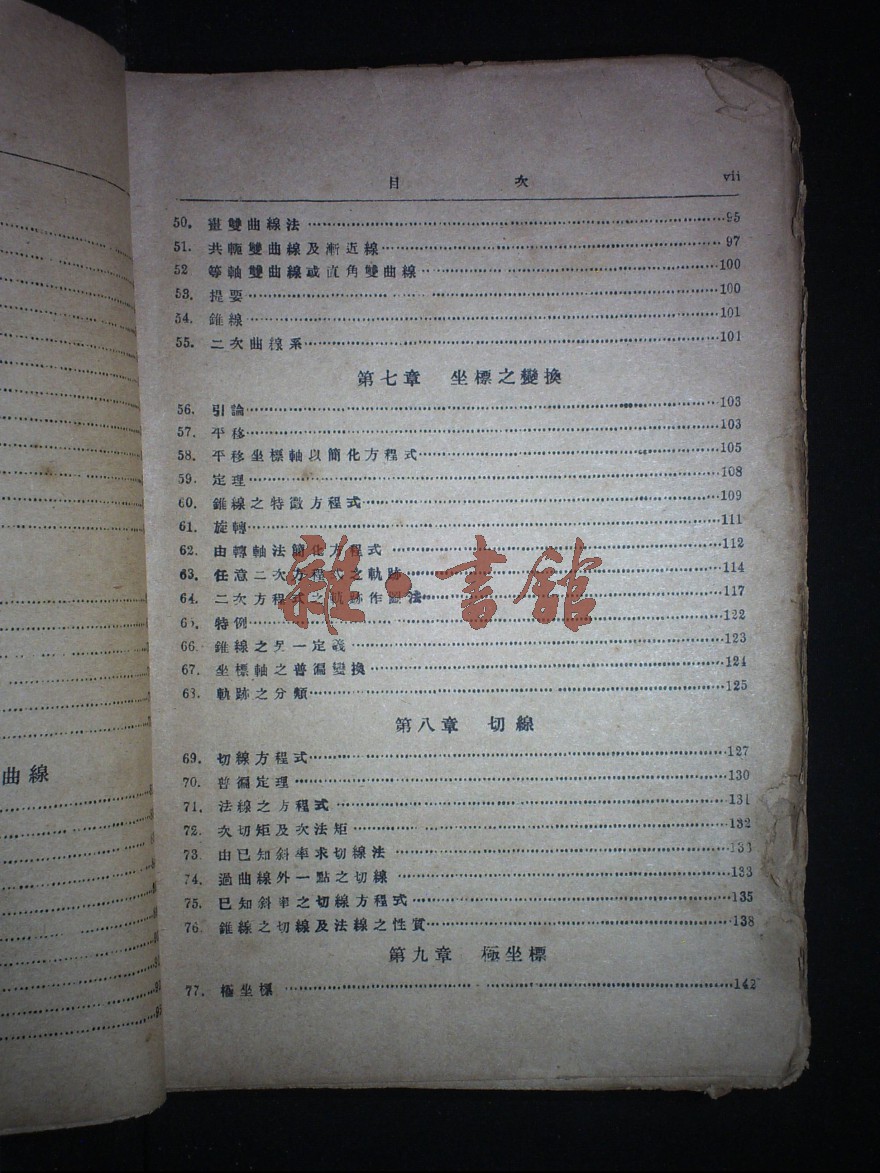 目 次 vii
50. 畫雙曲線法 95
51. 共軛雙曲線及漸近線 97
52 等軸雙曲線或直角雙曲線 100
53. 提要 100
54. 錐線 101
55. 二次曲線系 101
第七章 坐標之變換
56. 引論 103
57. 平移 103
58. 平移坐標軸以簡化方程式 105
59. 定理 108
60. 錐線之特徵方程式 109
61. 旋轉 111
62. 由轉軸法簡化方程式 112
63. 任意二次方程式之軌跡 114
64. 二次方程式之軌跡作圖法 117
雜·書館
65. 特例 122
66. 錐線之另一定義 123
67. 坐標軸之普遍變換 124
68. 軌跡之分類 125
第八章 切線
69. 切線方程式 127
70. 普遍定理 130
71. 法線之方程式 131
72. 次切矩及次法矩 132
73. 由已知斜率求切線法 133
74. 過曲線外一點之切線 133
75. 已知斜率之切線方程式 135
76. 錐線之切線及法線之性質 138
第九章 極坐標
77. 極坐標 142
曲線